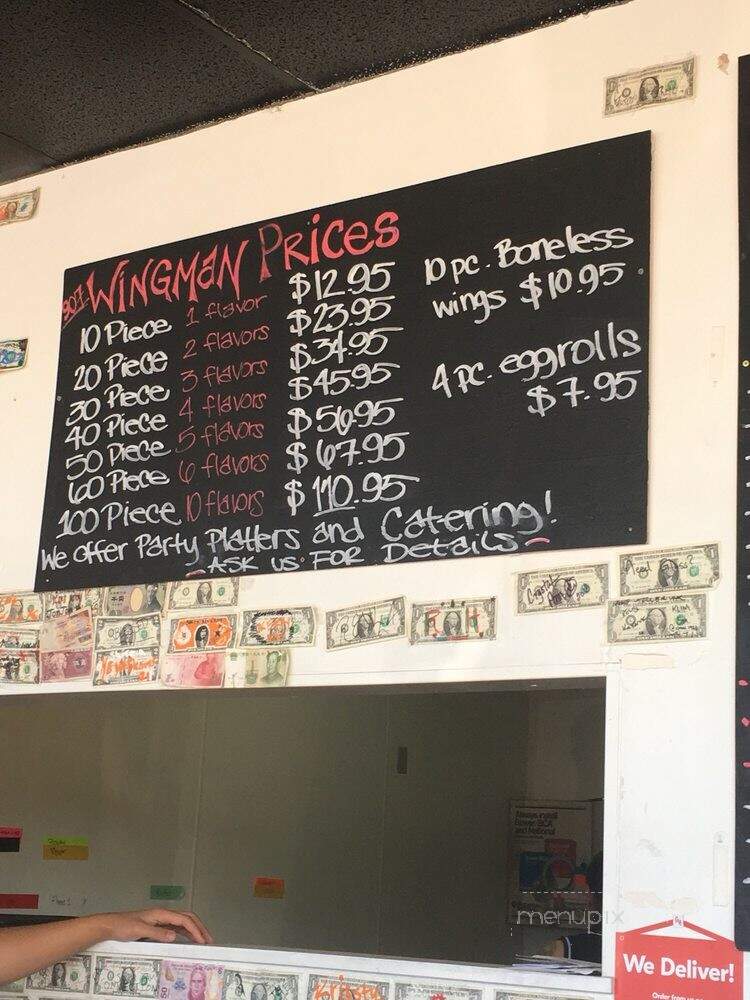 307 WINGMAN PRICES
10 Piece 1 flavor $12.95
20 Piece 2 flavors $23.95
30 Piece 3 flavors $34.95
40 Piece 4 flavors $45.95
50 Piece 5 flavors $56.95
60 Piece 6 flavors $67.95
100 Piece 10 flavors $110.95
We offer Party Platters and Catering!
- ASK US FOR Details -
10 pc. Boneless
wings $10.95
4 pc. eggrolls
$7.95
menupix
We Deliver!